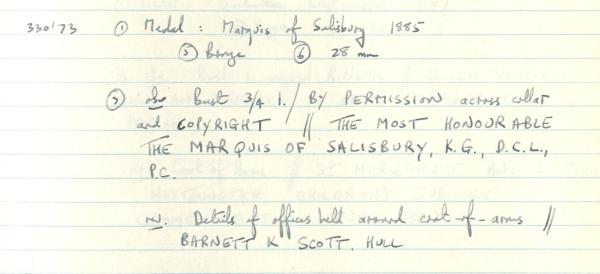 330'73 ① Medal : Marquis of Salisbury 1885
⑤ Bronze ⑥ 28 mm
⑦ obv Bust 3/4 l. / BY PERMISSION across collar
and COPYRIGHT // THE MOST HONOURABLE
THE MARQUIS OF SALISBURY, K.G., D.C.L.,
P.C.
rev. Details of offices held around coat-of-arms //
BARNETT & SCOTT, HULL